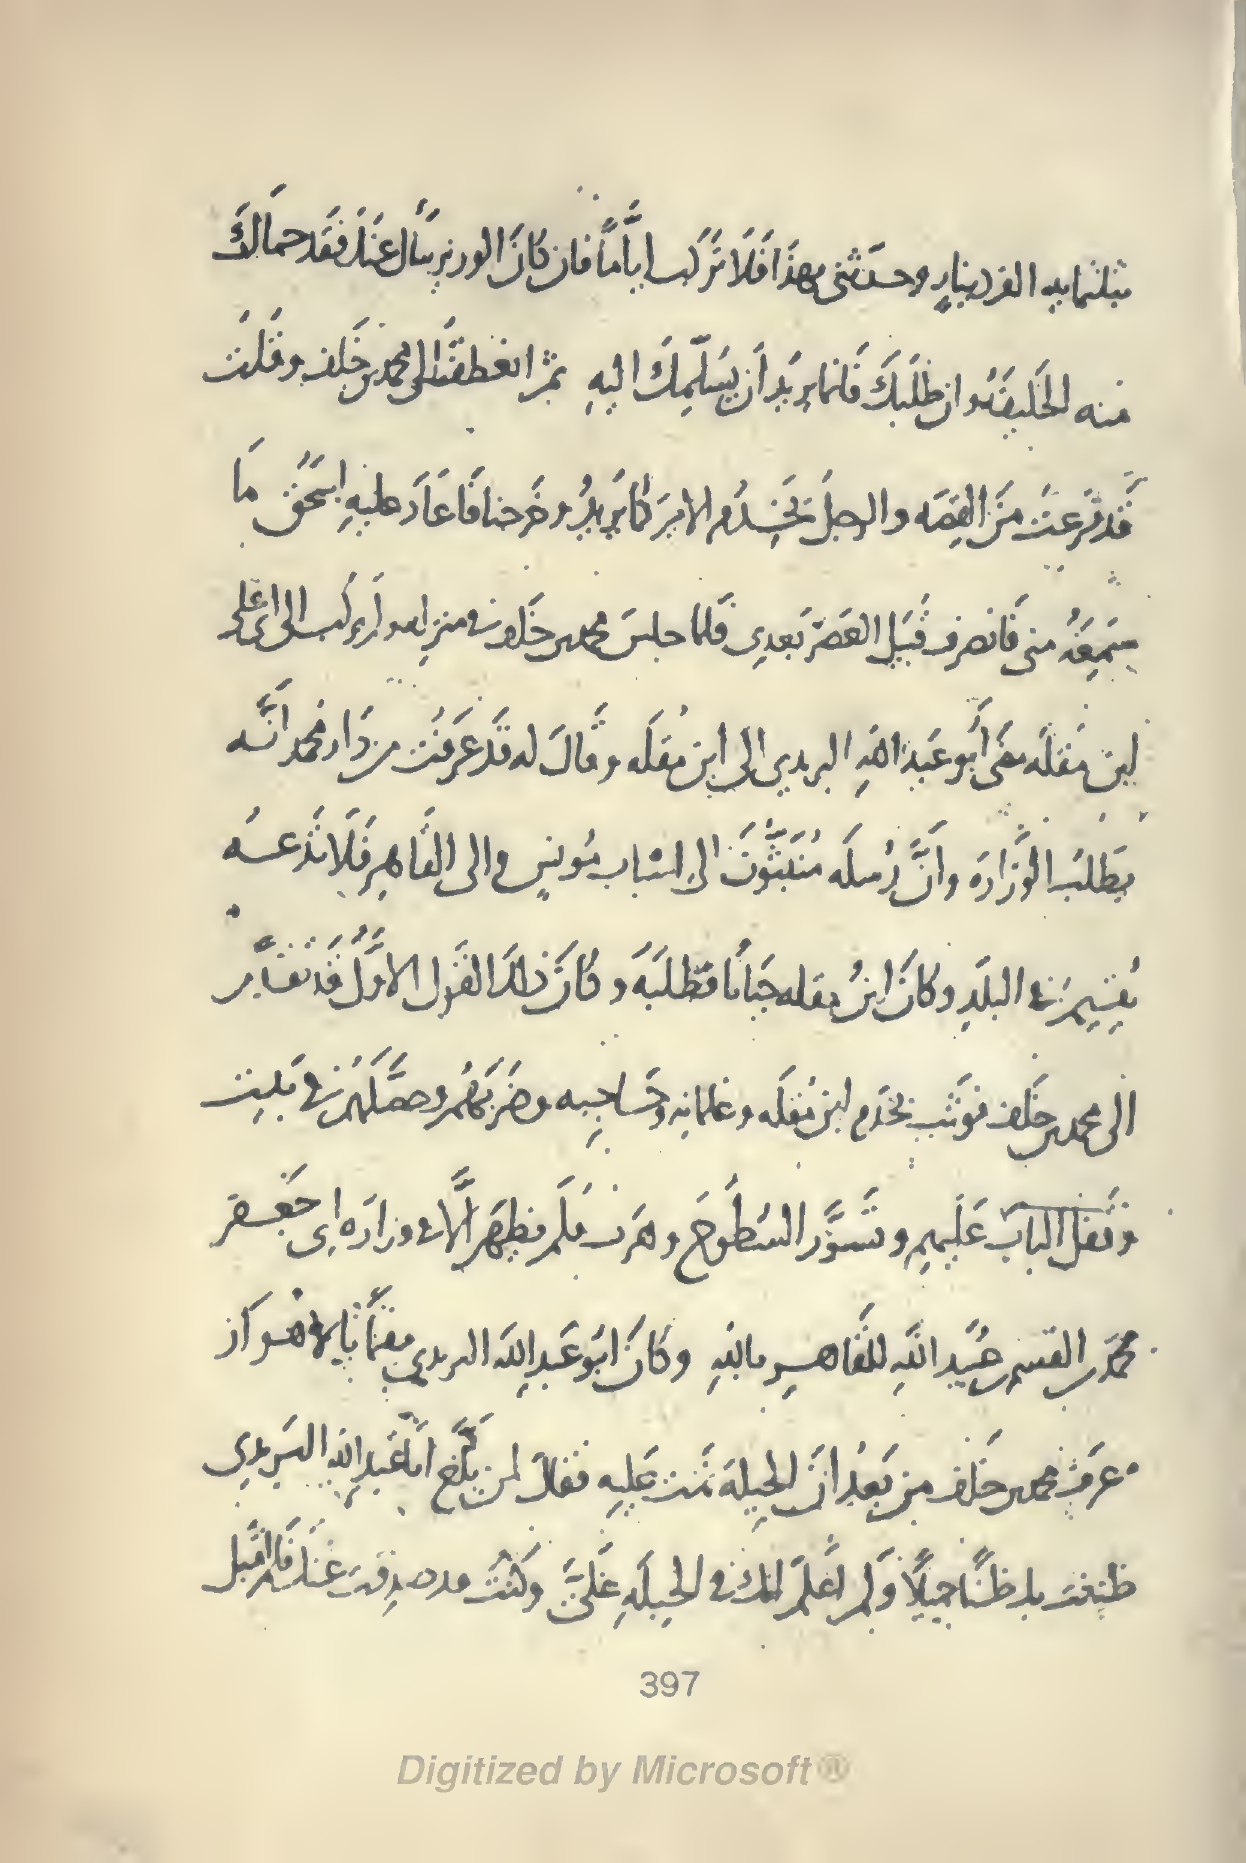 بثلثمايه الف دينارٍ وحدثنى بهذَا فَلَا تَركب ايَّاماً فان كانَ الوزير يسأل عنك فقد حماك
منه الخليفَه وان طلَبَكَ فانما يريد أن يسَلّمكَ اليهِ ثم انعطفتُ الى محمد بن خلف وقلت
قد فرغت من القصّه والرجلُ يخدُم الامير كما يريدُ وخرجنا فاعَادَ عليهِ اسحق مَا
سمِعَهُ منى فانصرف قُبَيل العَصر بَعدِى فلما جلسَ محمد بن خلف فى منزله ولم يركب الى ابى على
ابن مقلَه مضَى أبو عَبد اللهِ البريدى الى ابن مُقلَه وقالَ له قد عَرفتُ من دَار محمد انَّه
يطلبُ الوزارَه وانَّ رُسلَه مُنبَثُّونَ الى اسْبَاب مُونِسٍ والى القَاهِر فَلَا تدَعهُ
يُقيم فى البلَدِ وكانَ ابنُ مقله جبَانًا فطلَبَهُ وكانَ ذلكَ القَول الاوَّلُ قد تقدَّم
الى محمد بن خلف فوثب بخدَم ابن مُقلَه وغلمانِه وحَاجِبه وضرَبَهُم وحصَّلَهُم فى بَيت
وقفلَ البابَ عَليهِم وتسوَّر السُطُوحَ وهرَب فلَم يظهَر إلَّا فى وزارَه ابى جَعفر
محمّد بن القسم بن عُبَيد اللهِ للقَاهِرِ باللهِ وكانَ ابُو عَبدِ اللهِ البريدى مقيماً بالاهوَاز
وعرفَ محمد بن خلف من بَعدُ أنَّ الحِيلَة تمت عَليهِ فقالَ لمن يُبَلّغ ابا عَبدِ اللهِ البَرِيدِى
ظننت بك ظنّاً جميلًا ولم اعلَم انك فى الحِيلَهِ عَلىَّ وكنتُ قد صدقت عنك فلم اقبل
397
Digitized by Microsoft®